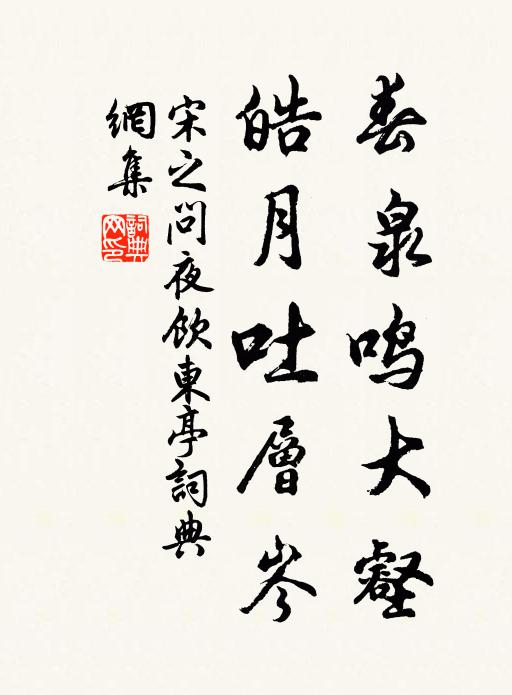 春泉鳴大壑
皓月吐層岑
宋之問夜飲東亭詞典
網集
詞典網印